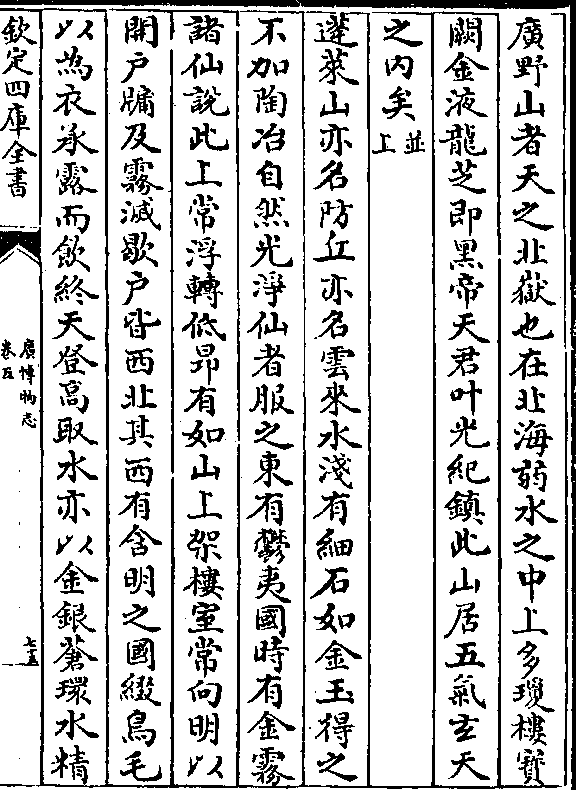 廣野山者天之北嶽也在北海弱水之中上多瓊樓寶
闕金液龍芝即黑帝天君叶光紀鎮此山居五氣玄天
之内矣並上
蓬萊山亦名防丘亦名雲來水淺有細石如金玉得之
不加陶冶自然光淨仙者服之東有鬱夷國時有金霧
諸仙說此上常浮轉低昂有如山上架樓室常向明以
開户牖及霧滅歇户皆西北其西有含明之國綴鳥毛
以為衣承露而飲終天登高取水亦以金銀蒼環水精
欽定四庫全書
廣博物志
卷五
七五